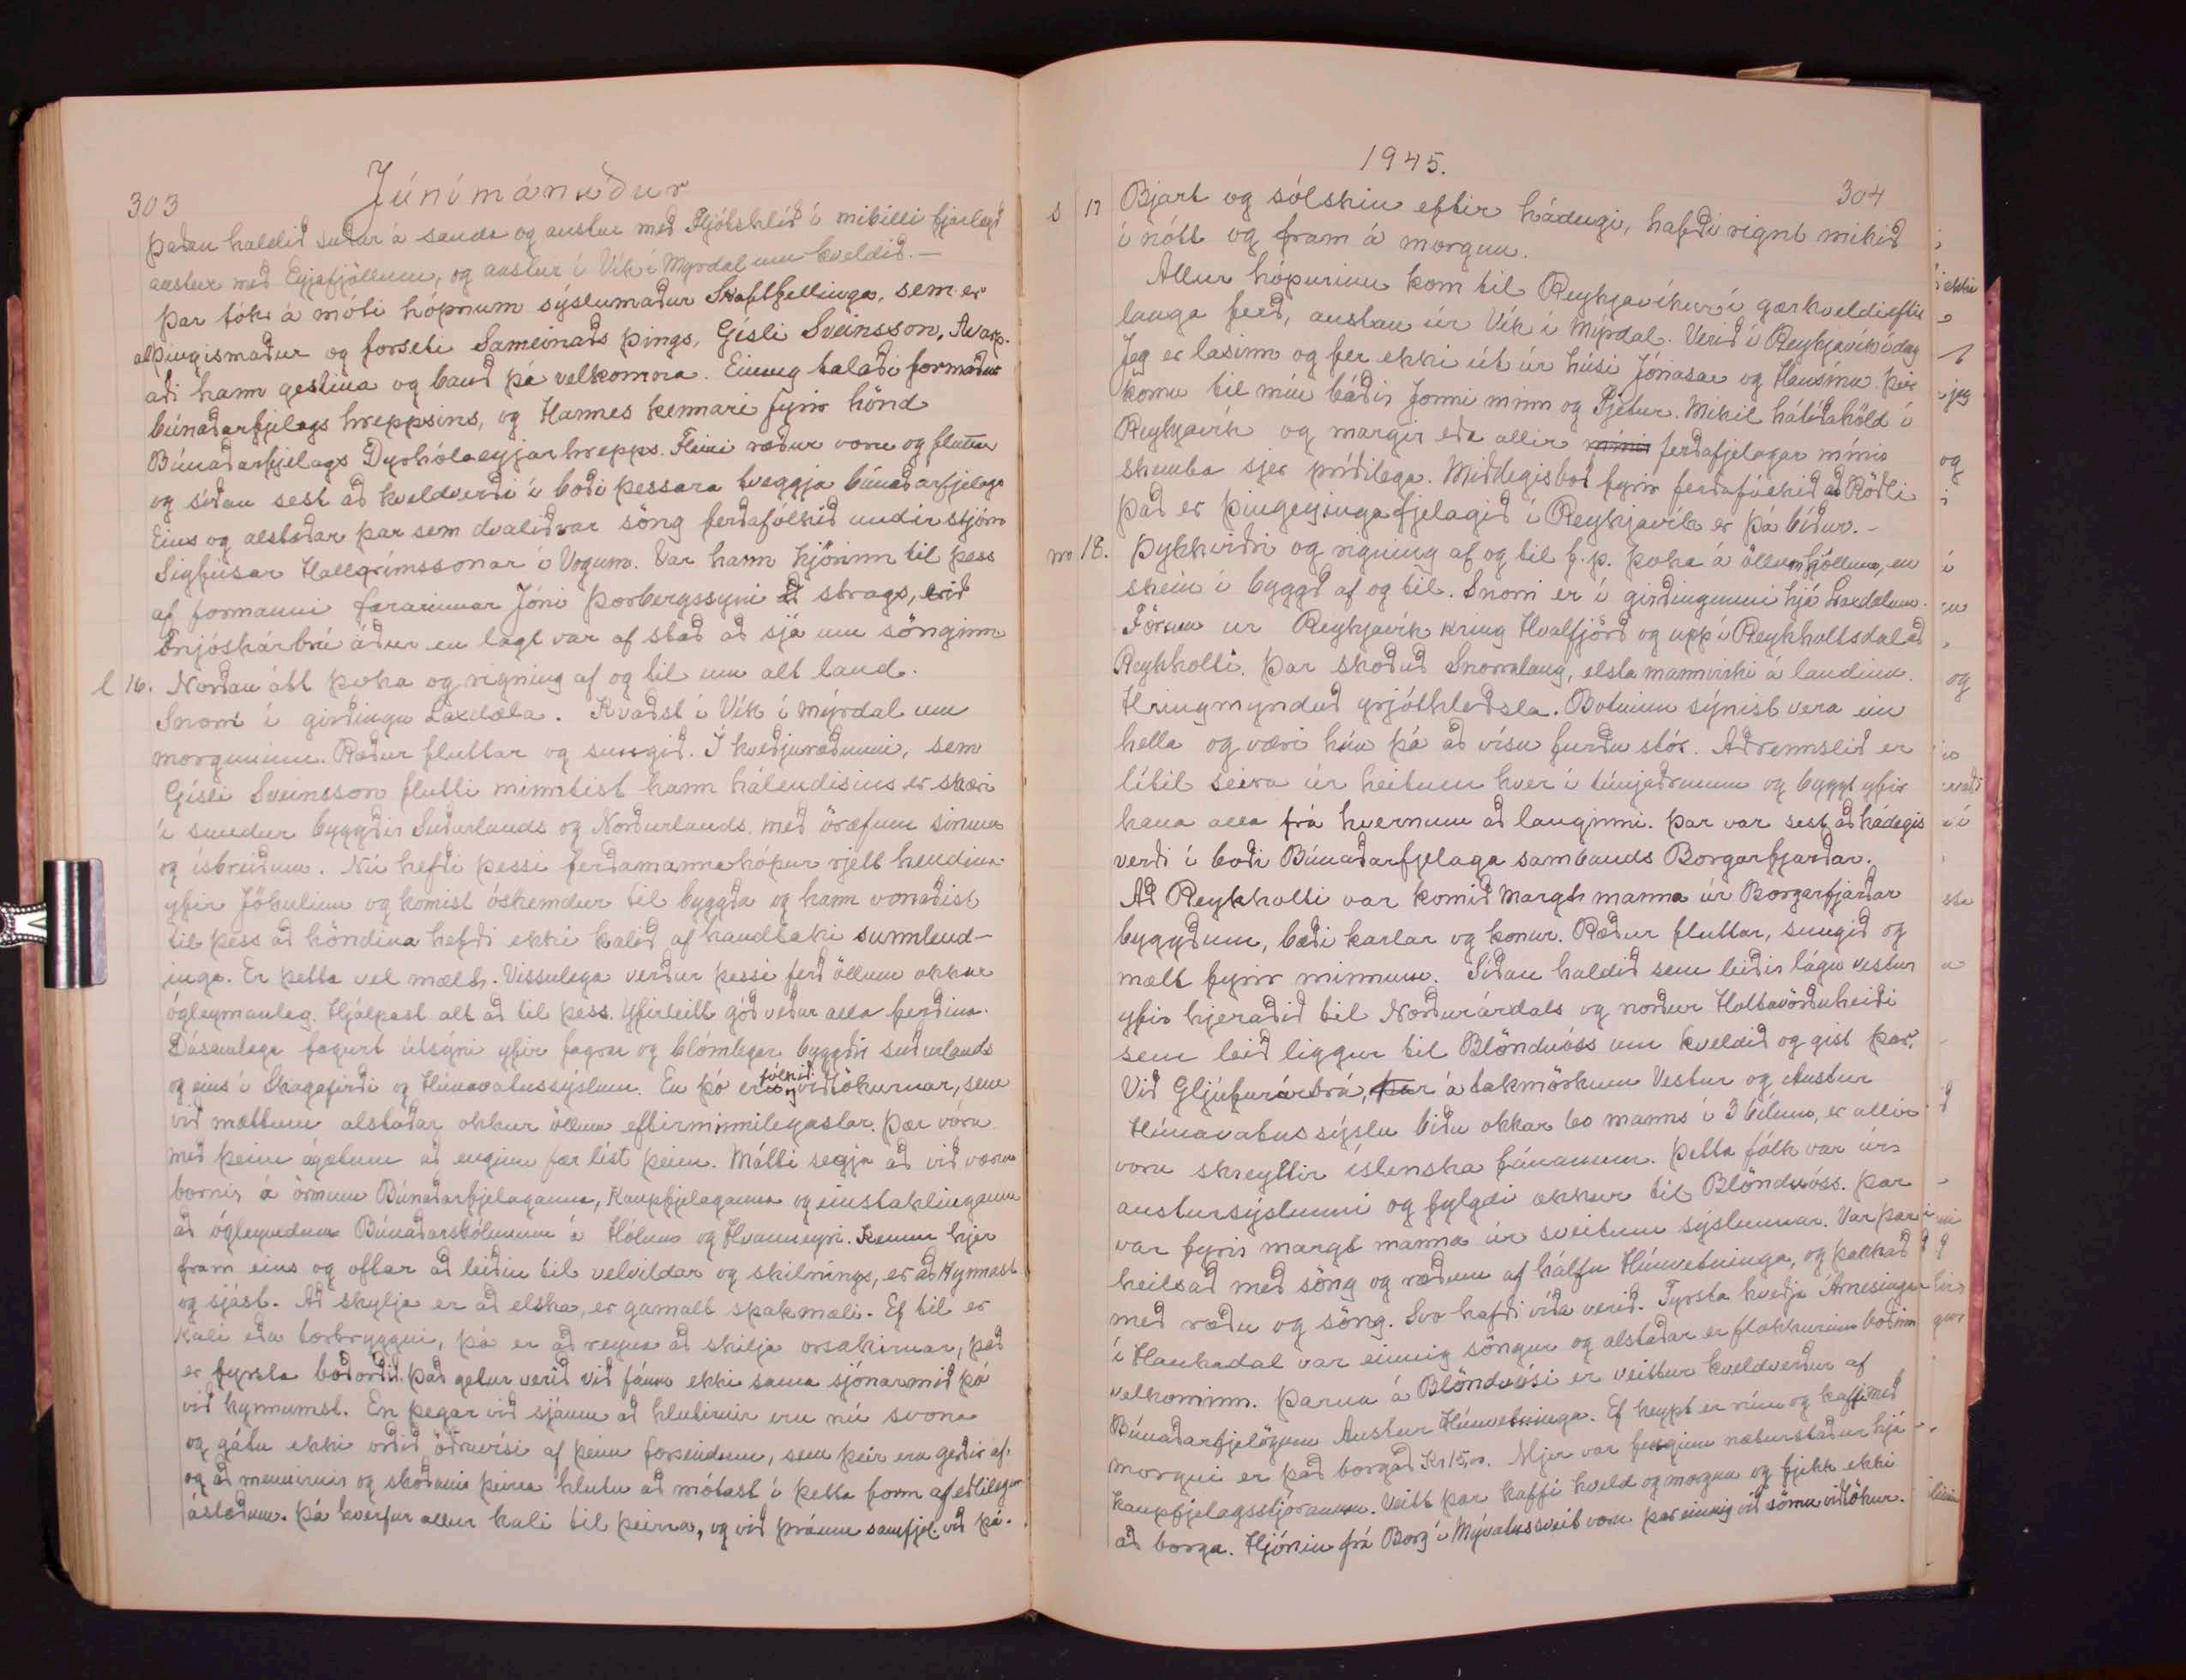 303
Júnímánuður
þaðan haldið suður á sanda og austur með Fljótshlíð í mikilli fjarlægð
austur með Eyjafjöllum, og austur í Vík í Mýrdal um kveldið. —
Þar tók á móti hópnum sýslumaður Skaftfellinga, sem er
alþingismaður og forseti Sameinaðs þings, Gísli Sveinsson. Ávarp-
aði hann gestina og bauð þá velkomna. Einnig talaði formaður
búnaðarfjelags hreppsins, og Hannes kennari fyrir hönd
Búnaðarfjelags Dyrhólaeyjarhrepps. Fleiri ræður voru og fluttar
og síðan sest að kveldverði í boði þessara tveggja búnaðarfjelaga
Eins og alstaðar þar sem dvalið var söng ferðafólkið undir stjórn
Sigfúsar Hallgrímssonar í Vogum. Var hann kjörinn til þess
af formanni fararinnar Jóni Þorbergssyni strags, við
Þnjóskárbrú áður en lagt var af stað að sjá um sönginn
l 16. Norðan átt þoka og rigning af og til um alt land.
Snorri í girðingu Laxdæla. Kvaðst í Vík í Mýrdal um
morguninn. Ræður fluttar og sungið. Í kveðjuræðunni, sem
Gísli Sveinsson flutti minntist hann hálendisins er skæri
í sundur byggðir Suðurlands og Norðurlands, með öræfum sínum
og ísbreiðum. Nú hefði þessi ferðamannahópur rjett hendina
yfir Jökulinn og komist óskemdur til byggða og hann vonaðist
til þess að höndina hefði ekki kalið af handtaki sunnlend-
inga. Er þetta vel mælt. Vissulega verður þessi ferð öllum okkur
ógleymanleg. Hjálpast alt að til þess. Yfirleitt góð veður alla ferðina.
Dásamlega fagurt útsýni yfir fagrar og blómlegar byggðir suðurlands
og eins í Skagafirði og Húnavatnssýslum. En þó er fólkið og viðtökurnar, sem
við mættum alstaðar okkur öllum eftirminnilegastar. Þær voru
með þeim ágætum að enginn fær líst þeim. Mátti segja að við værum
bornir á örmum Búnaðarfjelaganna, Kaupfjelaganna og einstaklinganna
að ógleymdum Búnaðarskólunum á Hólum og Hvanneyri. Kemur hjer
fram eins og oftar að leiðin til velvildar og skilnings, er að kynnast
og sjást. Að skylja er að elska, er gamalt spakmæli. Ef til er
kali eða tortryggni, þá er að reyna að skilja orsakirnar, það
er fyrsta boðorðið. Það getur verið við fáum ekki sama sjónarmið þó
við kynnumst. En þegar við sjáum að hlutirnir eru nú svona
og gátu ekki orðið öðruvísi af þeim forsendum, sem þeir eru gerðir af.
og að mennirnir og skoðanir þeirra hlutu að mótast í þetta form af eðlilegum
ástæðum. Þá hverfur allur kali til þeirra, og við þráum samfjel. við þá.
1945.
304
s 17 Bjart og sólskin eftir hádegi, hafði rignt mikið
í nótt og fram á morgun.
Allur hópurinn kom til Reykjavíkur í gærkveldi eftir
langa ferð, austan úr Vík í Mýrdal. Verið í Reykjavík í dag
Jeg er lasinn og fer ekki út úr húsi Jónasar og Hansínu. Þeir
komu til mín báðir Jonni minn og Pjetur. Mikil hátíðahöld í
Reykjavík og margir eða allir mínir ferðafjelagar mínir
skemta sjer prýðilega. Middegisboð fyrir ferðafólkið að Röðli
það er Þingeyingafjelagið í Reykjavík er þá bíður. –
m 18. Þykkviðri og rigning af og til f.p. þoka á öllum fjöllum, en
skein í byggð af og til. Snorri er í girðingunni hjá Laxdælum.
Förum úr Reykjavík kring Hvalfjörð og upp í Reykholtsdal að
Reykholti. Þar skoðuð Snorralaug, elsta mannvirki á landinu.
Hringmynduð grjóthleðsla. Botninn sýnist vera ein
hella og væri hún þá að vísu furðu stór. Aðrennslið er
lítil seira úr heitum hver í túnjaðrunum og byggt yfir
hana alla frá hvernum að lauginni. Þar var sest að hádegis
verði í boði Búnaðarfjelaga sambands Borgarfjarðar.
Að Reykholti var komið margt manna úr Borgarfjarðar
byggðum, bæði karlar og konur. Ræður fluttar, sungið og
mælt fyrir minnum. Síðan haldið sem leiðir lágu vestur
yfir hjeraðið til Norðurárdals og norður Holtavörðuheiði
sem leið liggur til Blönduóss um kveldið og gist þar.
Við Gljúfurárbrú, þar á takmörkum Vestur og Austur
Húnavatnssýslu biðu okkar 60 manns í 3 bílum, er allir
voru skreyttir íslenska fánanum. Þetta fólk var úr
austursýslunni og fylgdi okkur til Blönduóss. Þar
var fyrir margt manna úr sveitum sýslunnar. Var þar
heilsað með söng og ræðum af hálfu Húnvetninga, og þakkað
með ræðu og söng. Svo hafði víða verið. Fyrsta kveðja Árnesinga
í Haukadal var einnig söngur og alstaðar er flokkurinn boðinn
velkominn. Þarna á Blönduósi er veittur kveldverður af
Búnaðarfjelögum Austur Húnvetninga. Ef keypt er rúm og kaffi með
morgni er það borgað Kr 15,00. Mjer var fenginn næturstaður hjá
kaupfjelagsstjóranum. Veitt þar kaffi kveld og morgun og fjekk ekki
að borga. Hjónin frá Borg í Mývatnssveit voru þar einnig við sömu viðtökur.